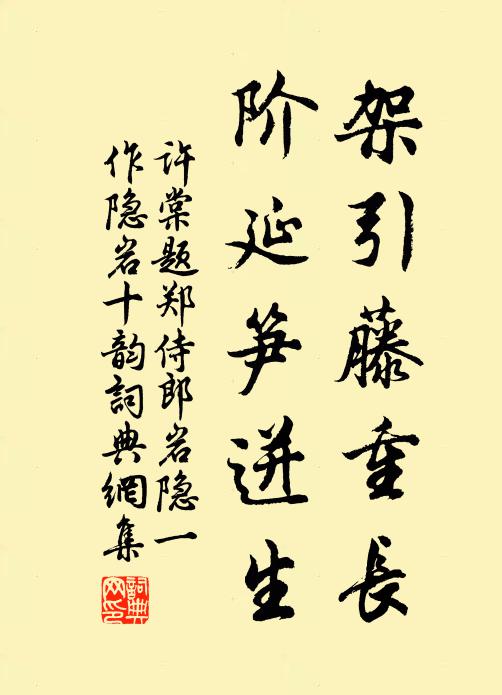 架引藤重長
阶延笋迸生
许棠题郑侍郎岩隐一
作隐岩十韵詞典網集
詞典网印